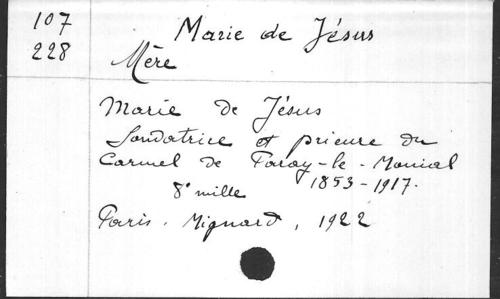 107
228
Marie de Jésus
Mère
Marie de Jésus
fondatrice et prieure du
Carmel de Paray-le-Monial
1853-1917.
8e mille
Paris. Mignard, 1922